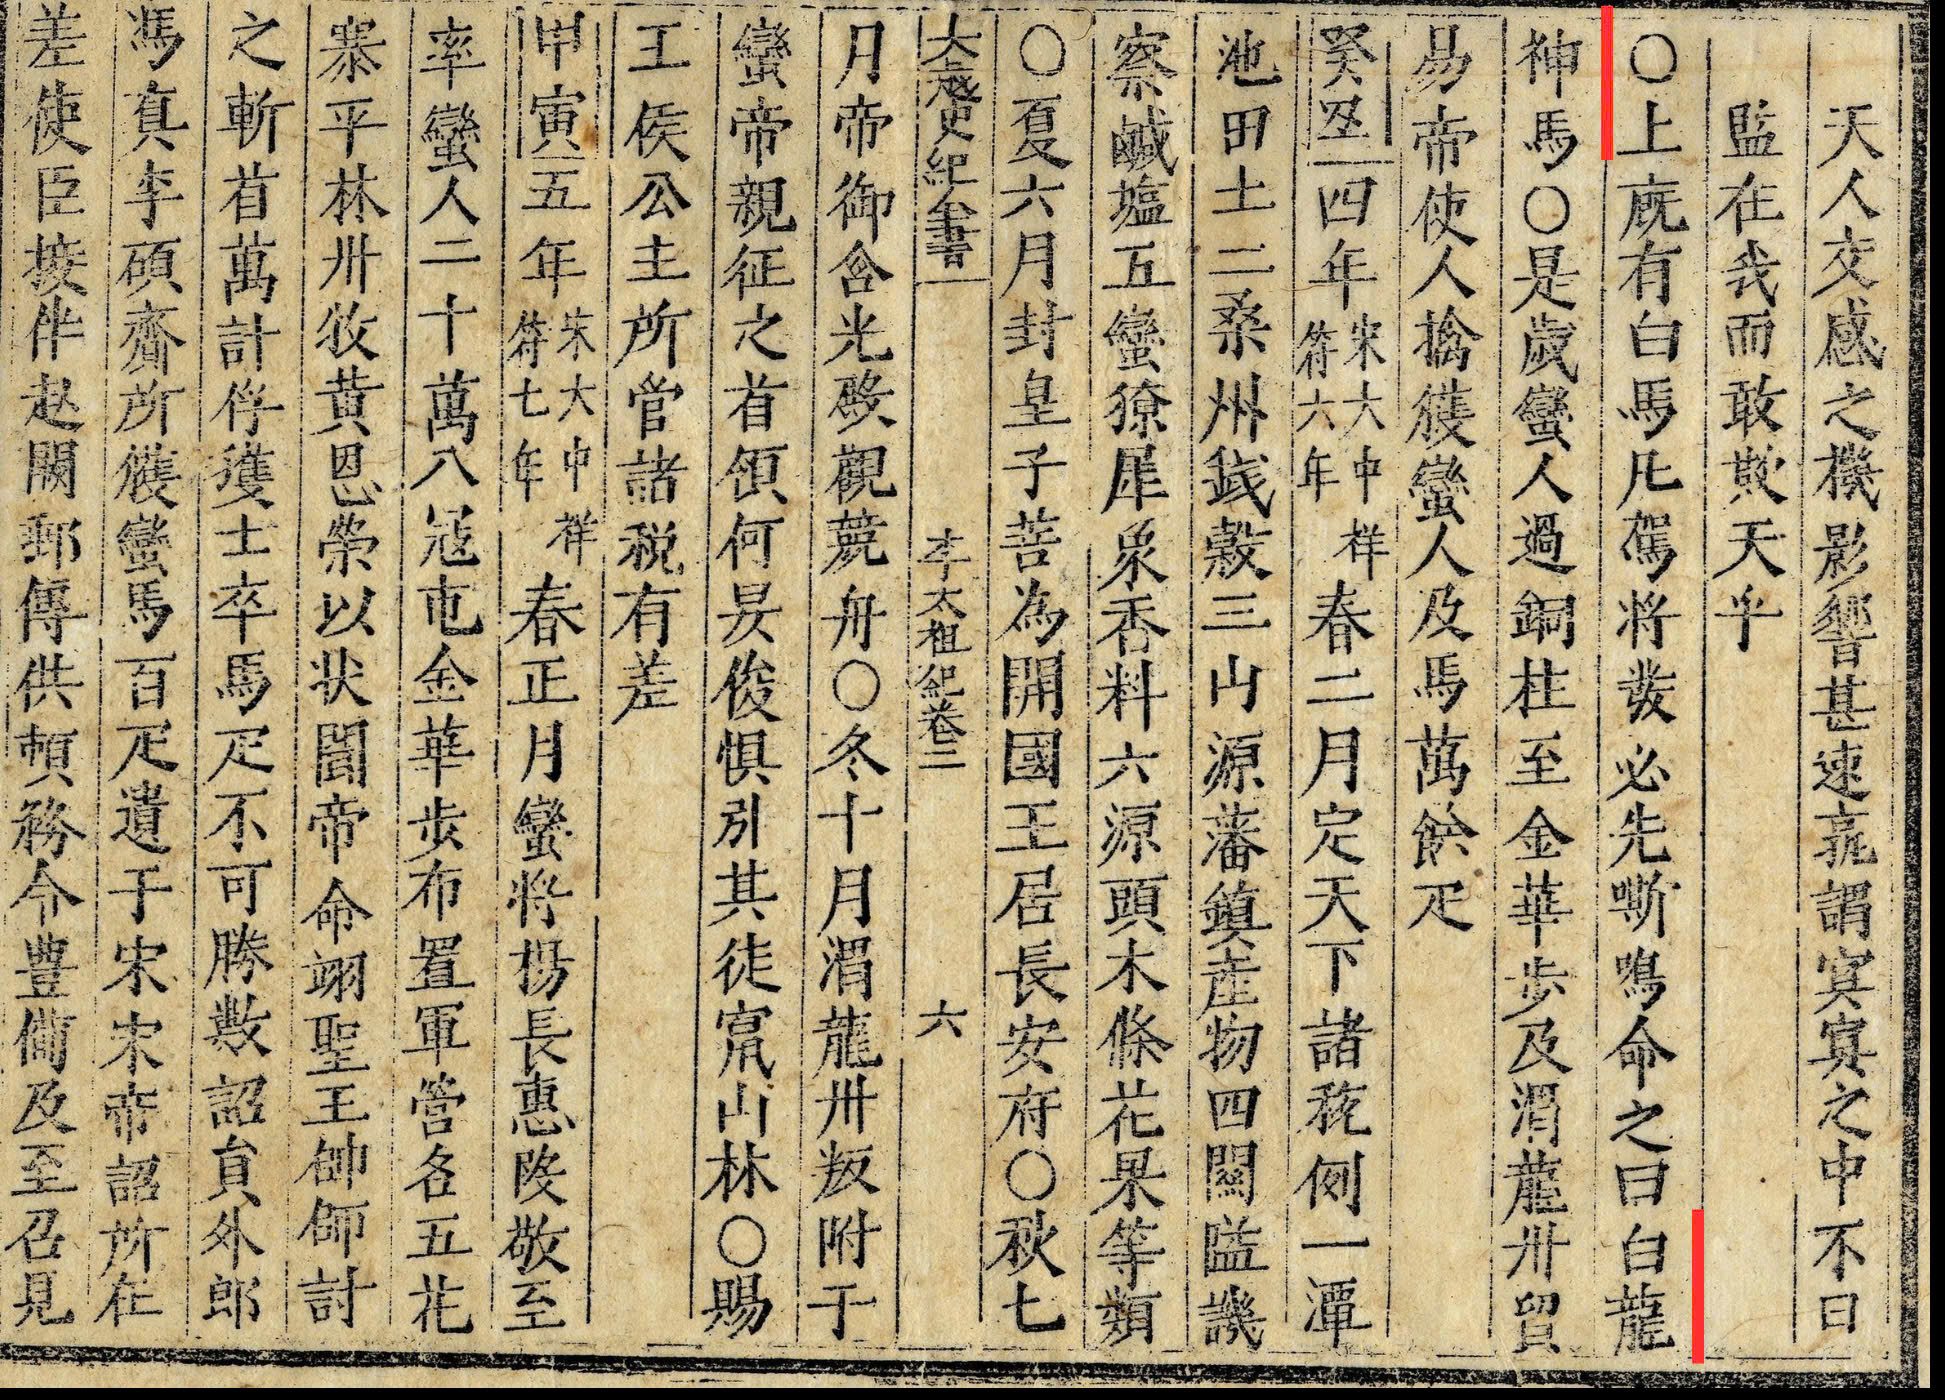 天人交感之機影響甚速孰謂冥冥之中不曰
監在我而敢欺天乎
○上厩有白馬凡駕將發必先嘶鳴命之曰白龍
神馬○是歲蠻人過銅柱至金華步及渭龍州貿
易帝使人擒獲蠻人及馬萬餘疋
癸丑四年宋大中祥符六年春二月定天下諸稅例一潭
池田土二桑州錢穀三山源藩鎮產物四關隘譏
察鹹塩五蠻獠犀象香料六源頭木條花果等類
○夏六月封皇子菩為開國王居長安府○秋七
大越史紀全書 李太祖紀卷二 六
月帝御含光殿觀競舟○冬十月渭龍州叛附于
蠻帝親征之首領何炅俊懼引其徒竄山林○賜
王侯公主所管諸稅有差
甲寅五年宋大中祥符七年春正月蠻將楊長惠段敬至
率蠻人二十萬入冦屯金華步布置軍營名五花
寨平林州牧黃恩榮以狀聞帝命翊聖王帥師討
之斬首萬計俘獲士卒馬疋不可勝數詔貟外郎
馮真李碩齎所獲蠻馬百疋遺于宋宋帝詔所在
差使臣接伴赴闕郵傳供頓務令豊備及至召見